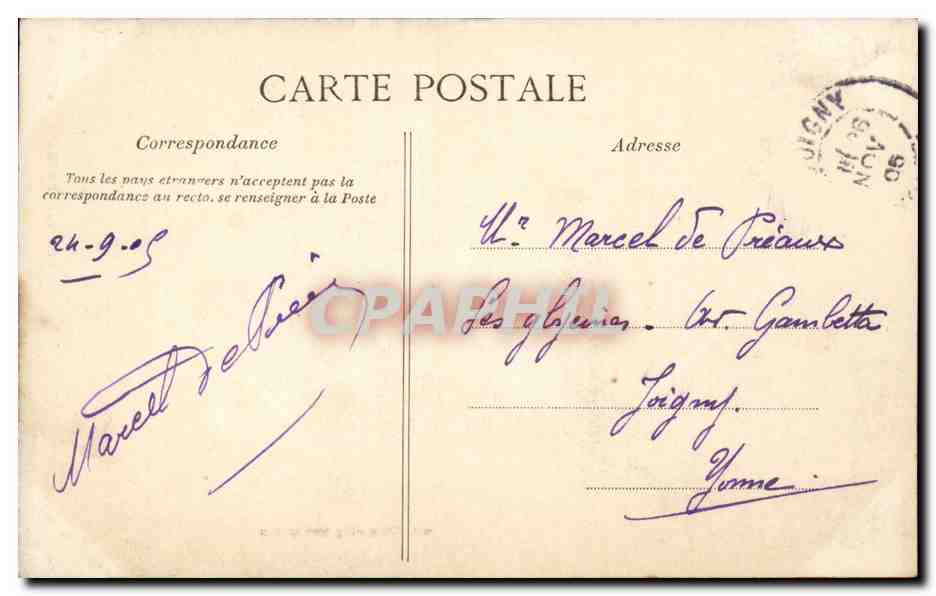 CARTE POSTALE
Correspondance
Tous les pays étrangers n'acceptent pas la
correspondance au recto. se renseigner à la Poste
24-9-05
Marcel de
Adresse
Mr Marcel de Préaux
Les glycines. Av. Gambetta
Joigny.
Yonne.
JOIGNY
26
NOV
05
CPAPHIL